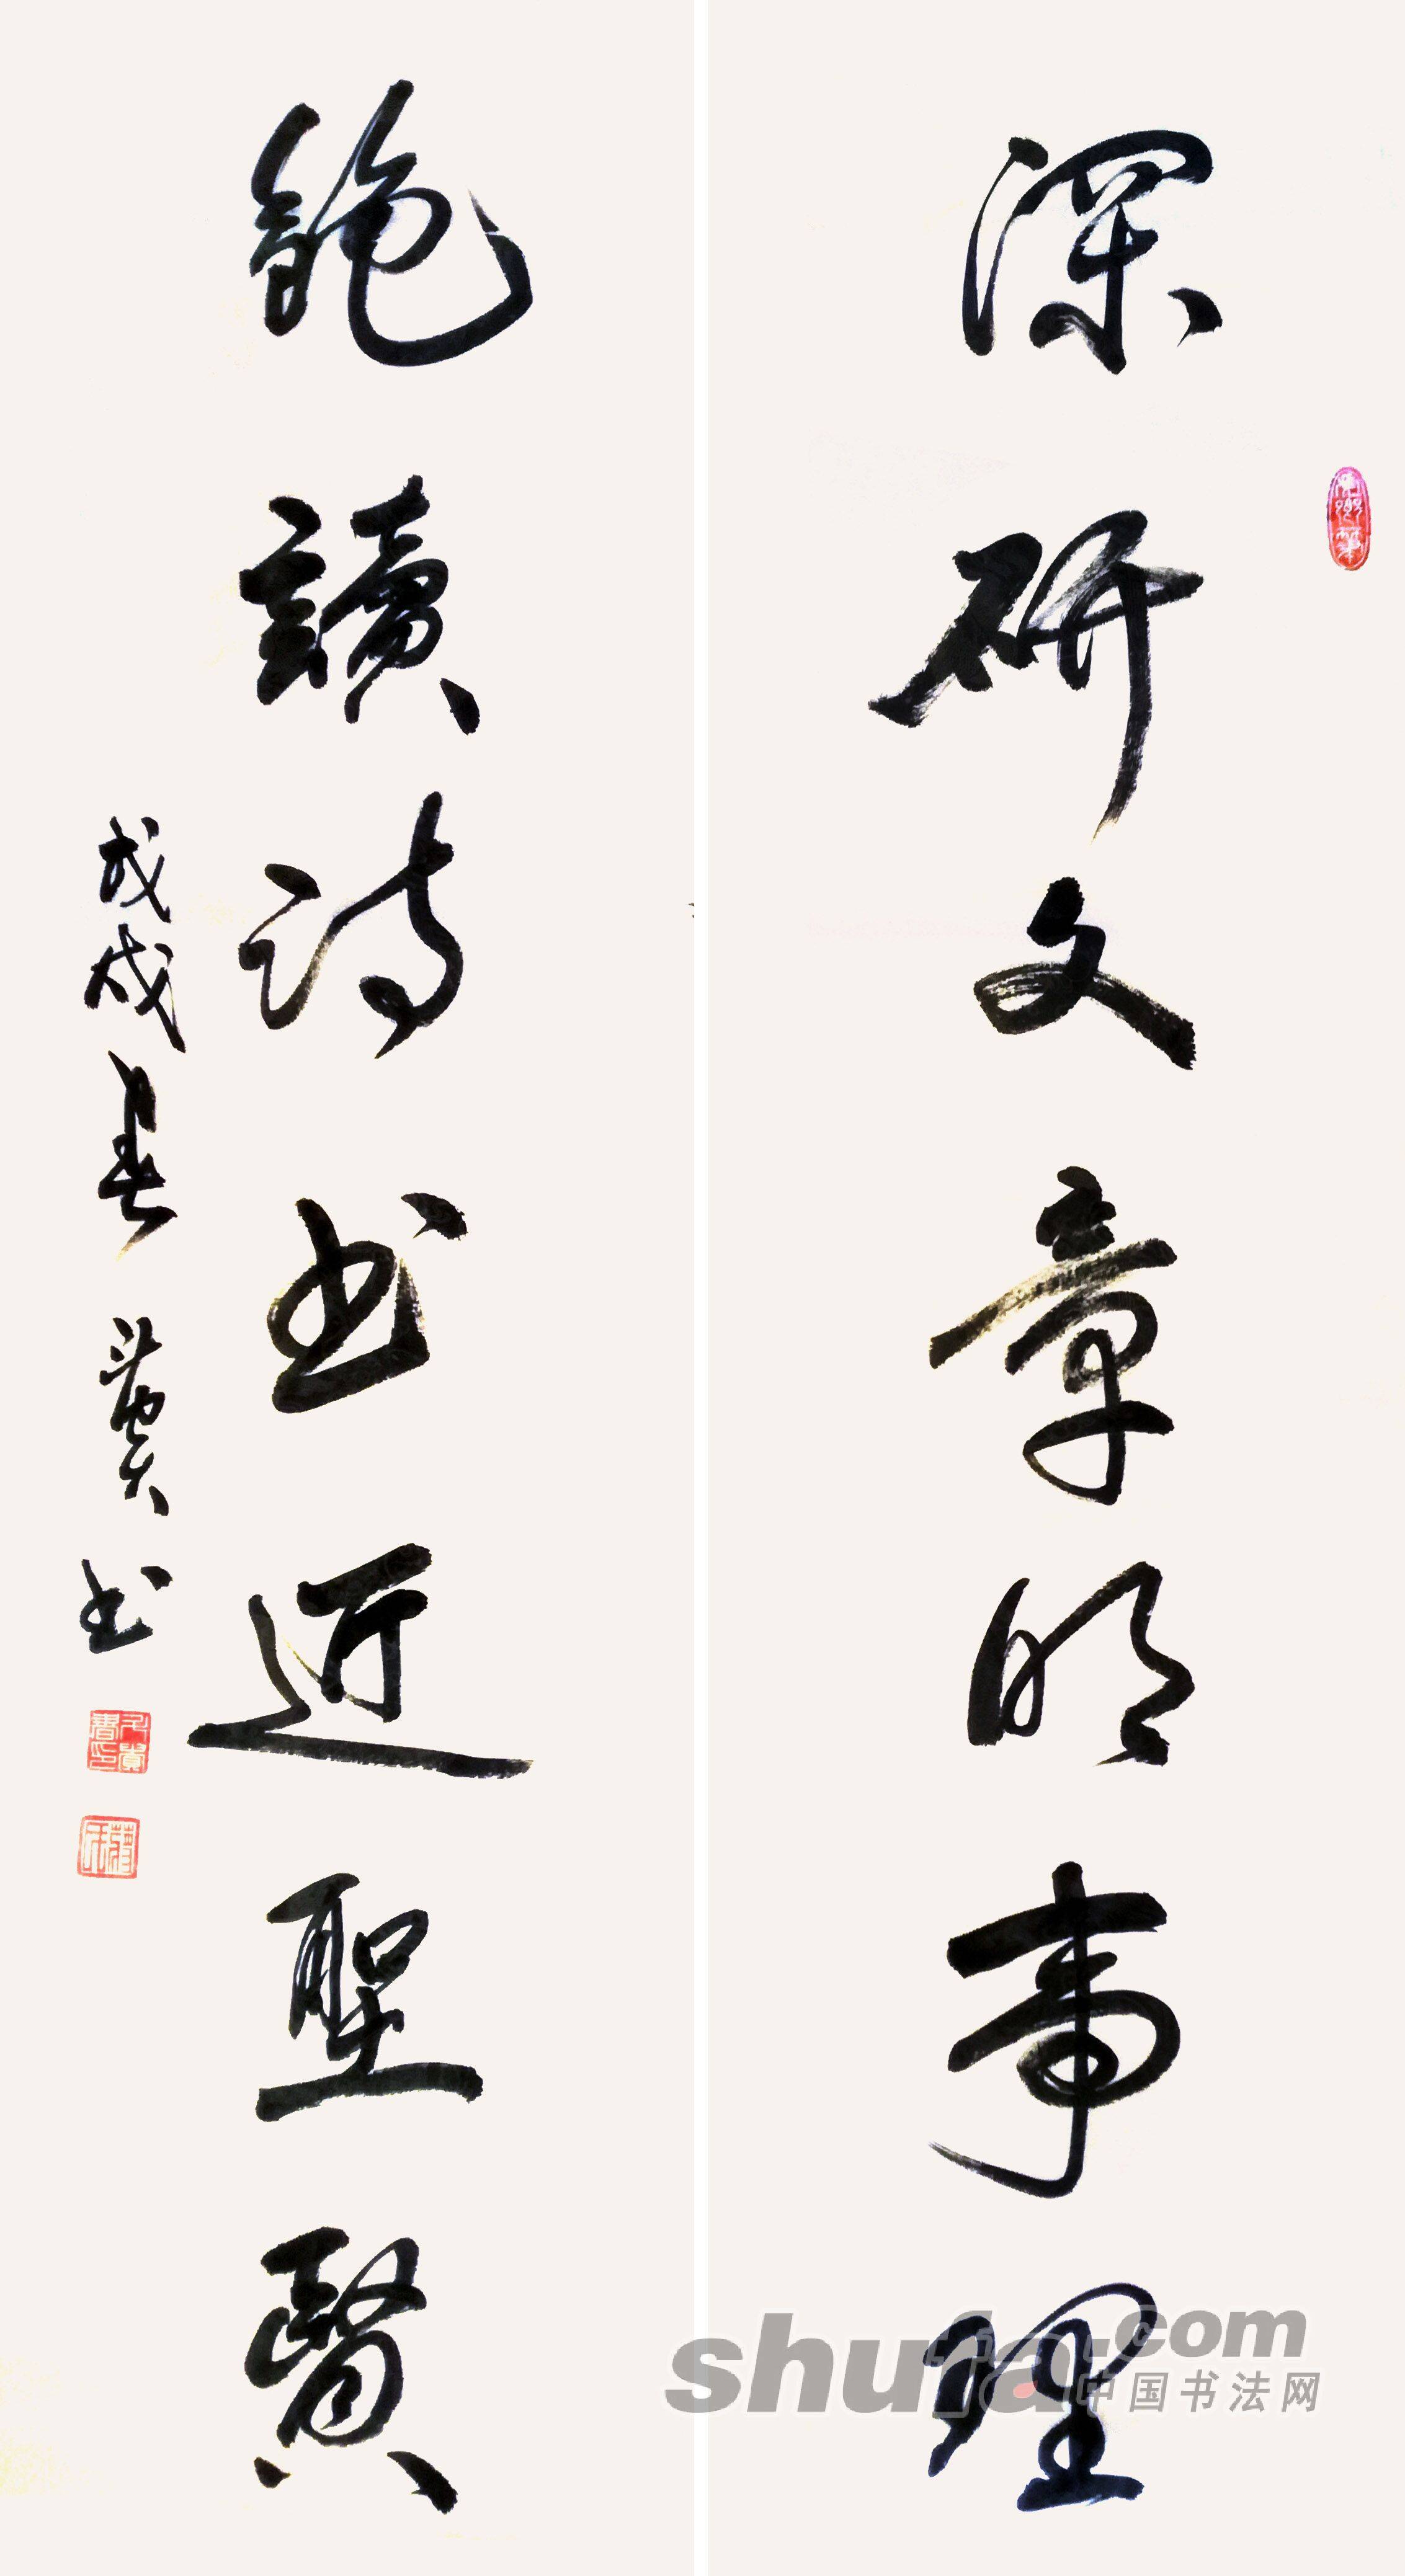 深研文章明事理
飽讀詩书近聖贤
戊戌春
书
shufa.com
中国书法网